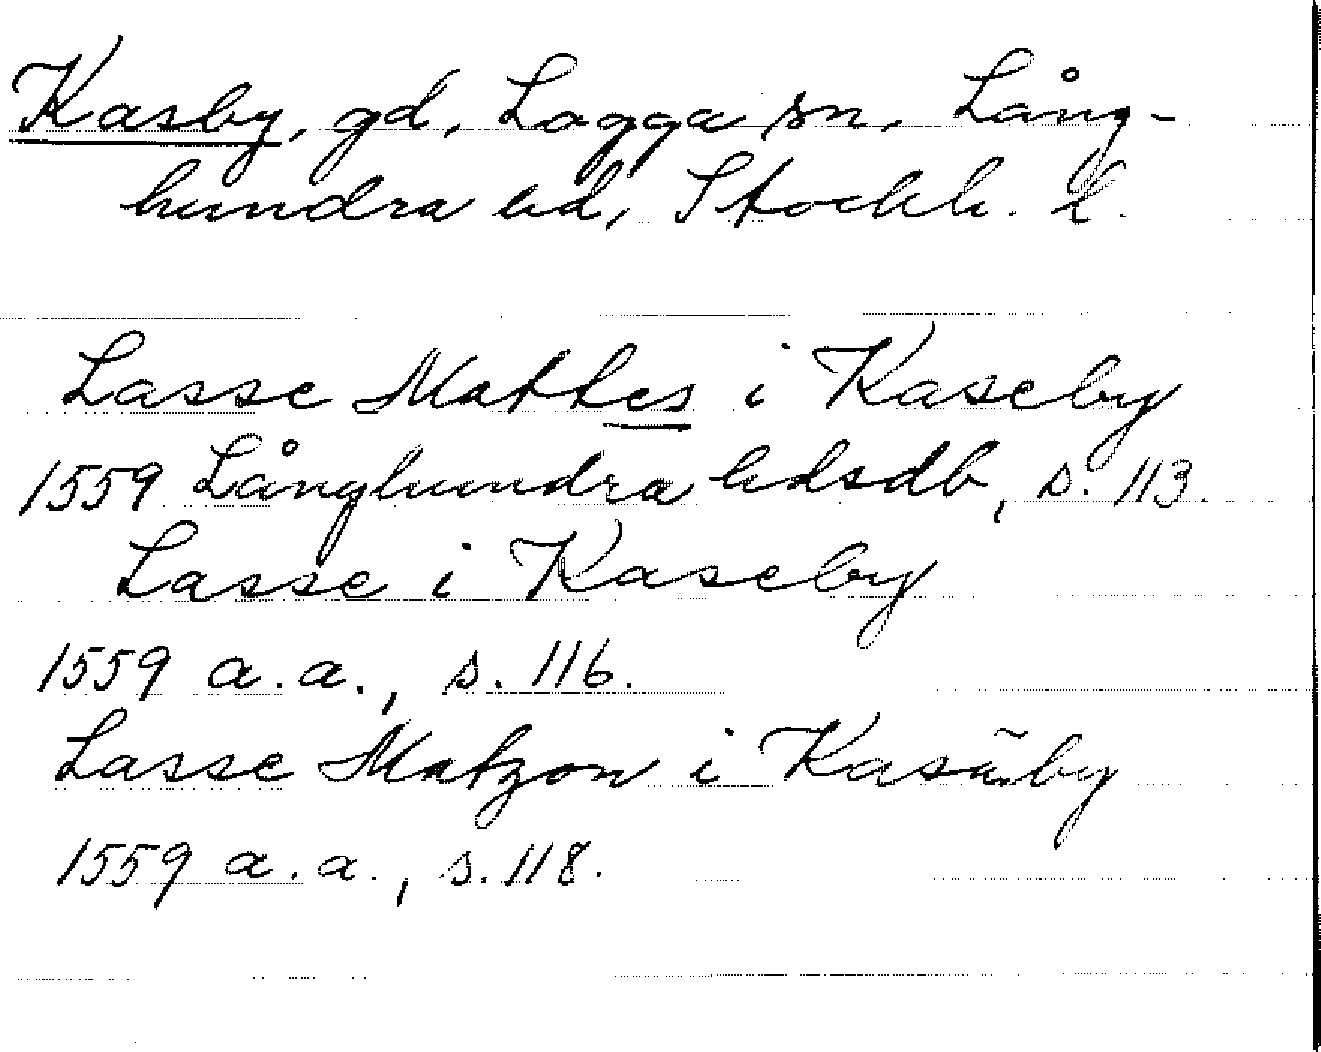 Kasby, gd, Lagga sn, Lång-
hundra hd, Stockh. l.
Lasse Mattes i Kaseby
1559 Långhundra hdsdb, s. 113.
Lasse i Kaseby
1559 a.a., s. 116.
Lasse Matzon i Kasūby
1559 a.a., s. 118.